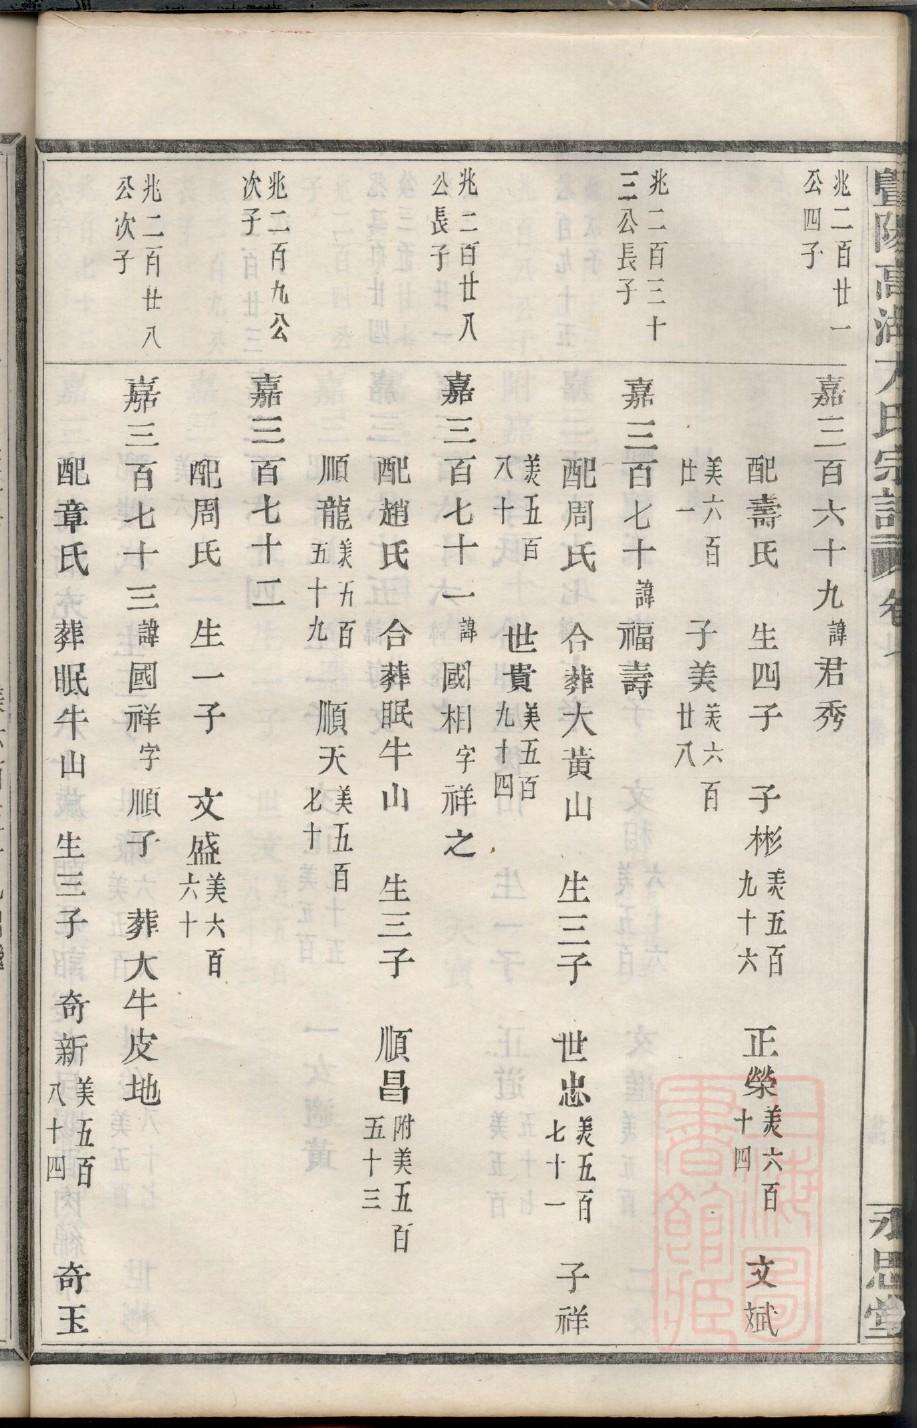 暨陽高湖 氏宗譜 卷
永思堂
兆二百廿一
公四子
嘉三百六十九諱君秀
配壽氏 生四子 子彬美五百九十六 正榮美六百十四 文斌
美六百廿一 子美美六百廿八
兆二百三十
三公長子
嘉三百七十諱福壽
配周氏 合葬大黄山 生三子 世忠美五百七十一 子祥
美五百八十 世貴美五百九十四
兆二百廿八
公長子
嘉三百七十一諱國相字祥之
配趙氏 合葬眠牛山 生三子 順昌附美五百五十三
順龍美五百五十九 順天美五百七十
兆二百九公
次子
嘉三百七十二
配周氏 生一子 文盛美六百六十
兆二百廿八
公次子
嘉三百七十三諱國祥字順子 葬大牛皮地
配章氏 葬眠牛山 生三子 奇新美五百八十四 奇玉